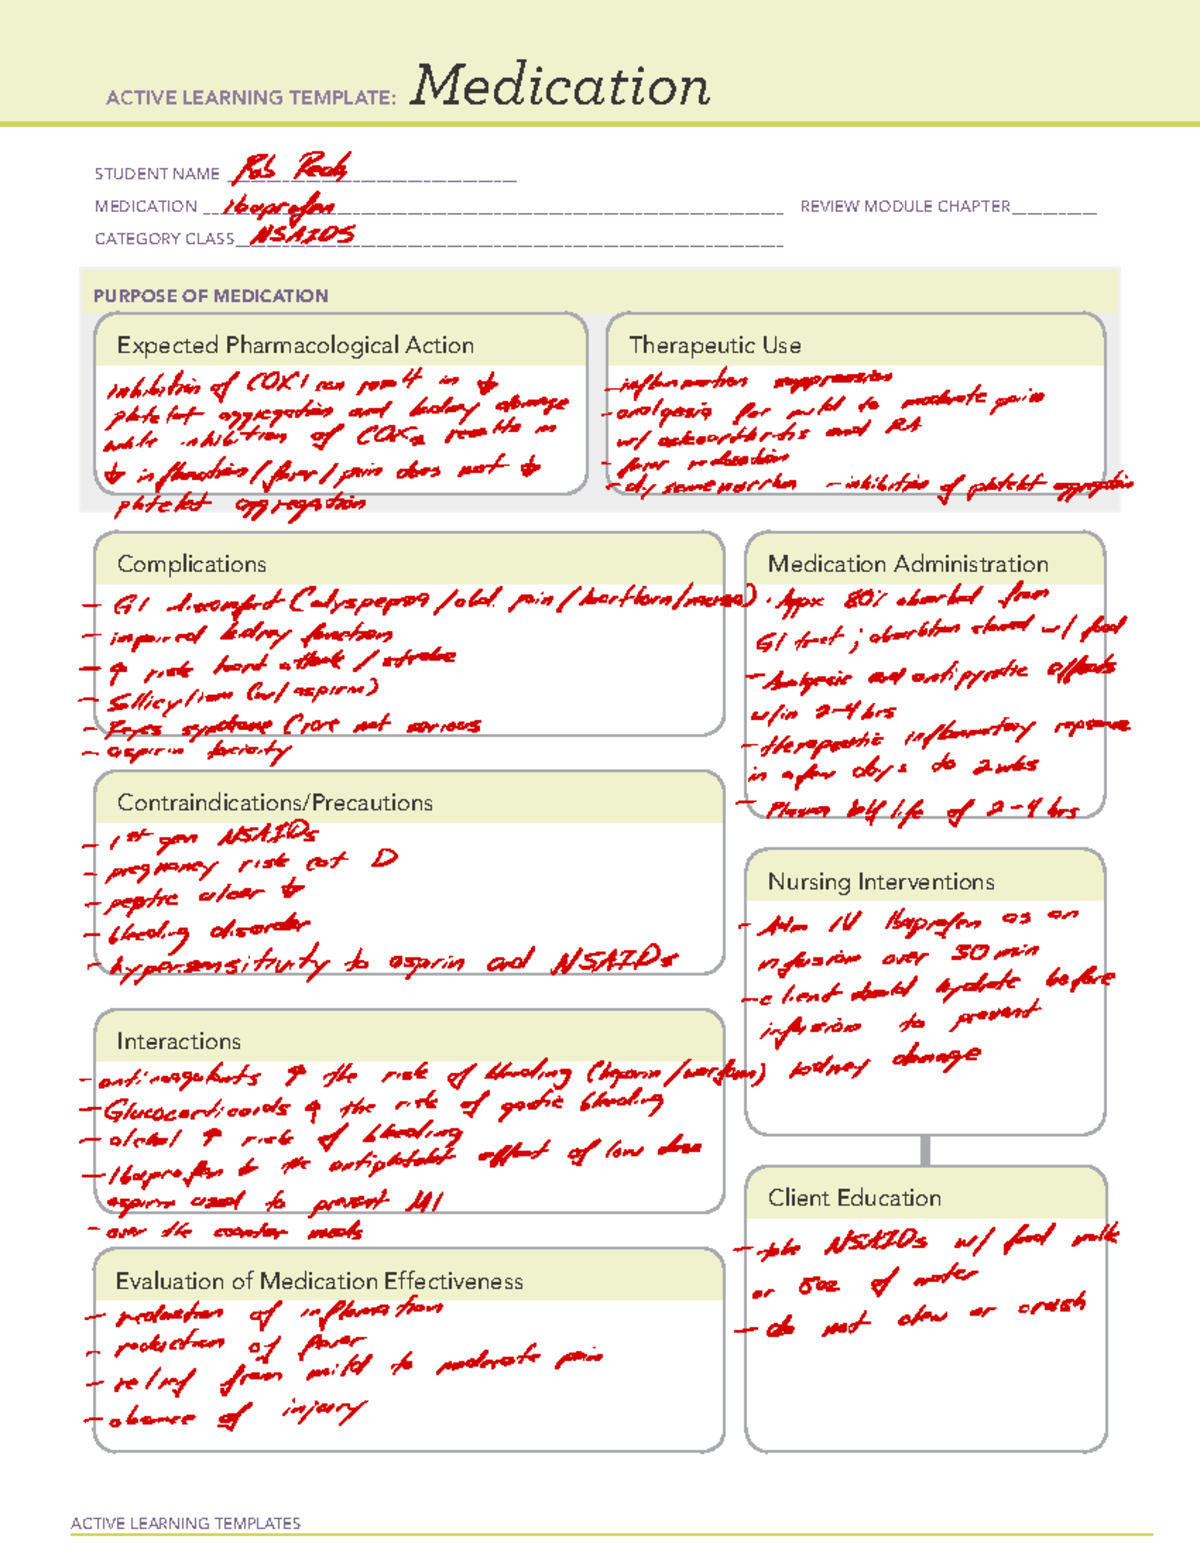 ACTIVE LEARNING TEMPLATE: Medication
STUDENT NAME Rob
MEDICATION Ibuprofen REVIEW MODULE CHAPTER
CATEGORY CLASS NSAIDS
PURPOSE OF MEDICATION
Expected Pharmacological Action
inhibition of COX1 can result in ↓
platelet aggregation and kidney damage
while inhibition of COX2 results in
↓ inflmation/fever/pain does not ↓
platelet aggregation
Therapeutic Use
- inflammation suppression
- analgesia for mild to moderate pain
w/ osteoarthritis and RA
- fever reduction
- dysmenorrhea - inhibition of platelet aggregation
Complications
- GI discomfort (dyspepsia/abd. pain/heartburn/nausea)
- impaired kidney function
- ↑ risk heart attack/stroke
- Sallicylism (w/ aspirin)
- Reyes syndrome (rare not serious
- aspirin toxicity
Medication Administration
- Appx 80% absorbed from
GI tract; absorbtion slowed w/ food
- Analgesic and antipyretic effects
w/in 2-4 hrs
- therapeutic inflammatory response
in a few days to 2 wks
- Plasma half life of 2-4 hrs
Contraindications/Precautions
- 1st gen NSAIDs
- pregnancy risk cat D
- peptic ulcer ↓
- bleeding disorder
- hypersensitivity to asprin and NSAIDs
Nursing Interventions
- Adm IV Ibuprofen as an
infusion over 30 min
- client should hydrate before
infusion to prevent
kidney damage
Interactions
- anticoagulants ↑ the risk of bleeding (heparin/warfarin)
- Glucocorticoids ↑ the risk of gastic bleeding
- alcohol ↑ risk of bleeding
- Ibuprofen ↓ the antiplatelet effect of low dose
aspirin used to prevent MI
- over the counter meds
Client Education
- take NSAIDs w/ food milk
or 8oz of water
- do not chew or crush
Evaluation of Medication Effectiveness
- reduction of inflamation
- reduction of fever
- relief from mild to moderate pain
- absence of injury
ACTIVE LEARNING TEMPLATES